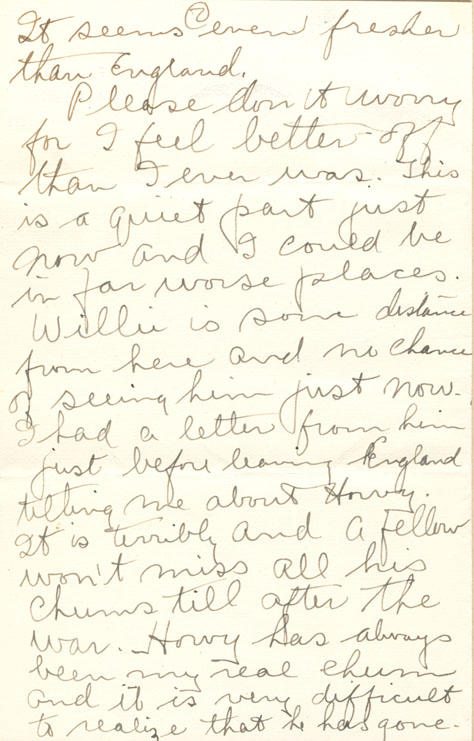 It seems even fresher
than England.
Please don't worry
for I feel better off
than I ever was. This
is a quiet part just
now and I could be
in far worse places.
Willie is some distance
from here and no chance
of seeing him just now.
I had a letter from him
just before leaving England
telling me about Howy.
It is terribly and a fellow
won't miss all his
chums till after the
war. Howy has always
been my real chum
and it is very difficult
to realize that he has gone.